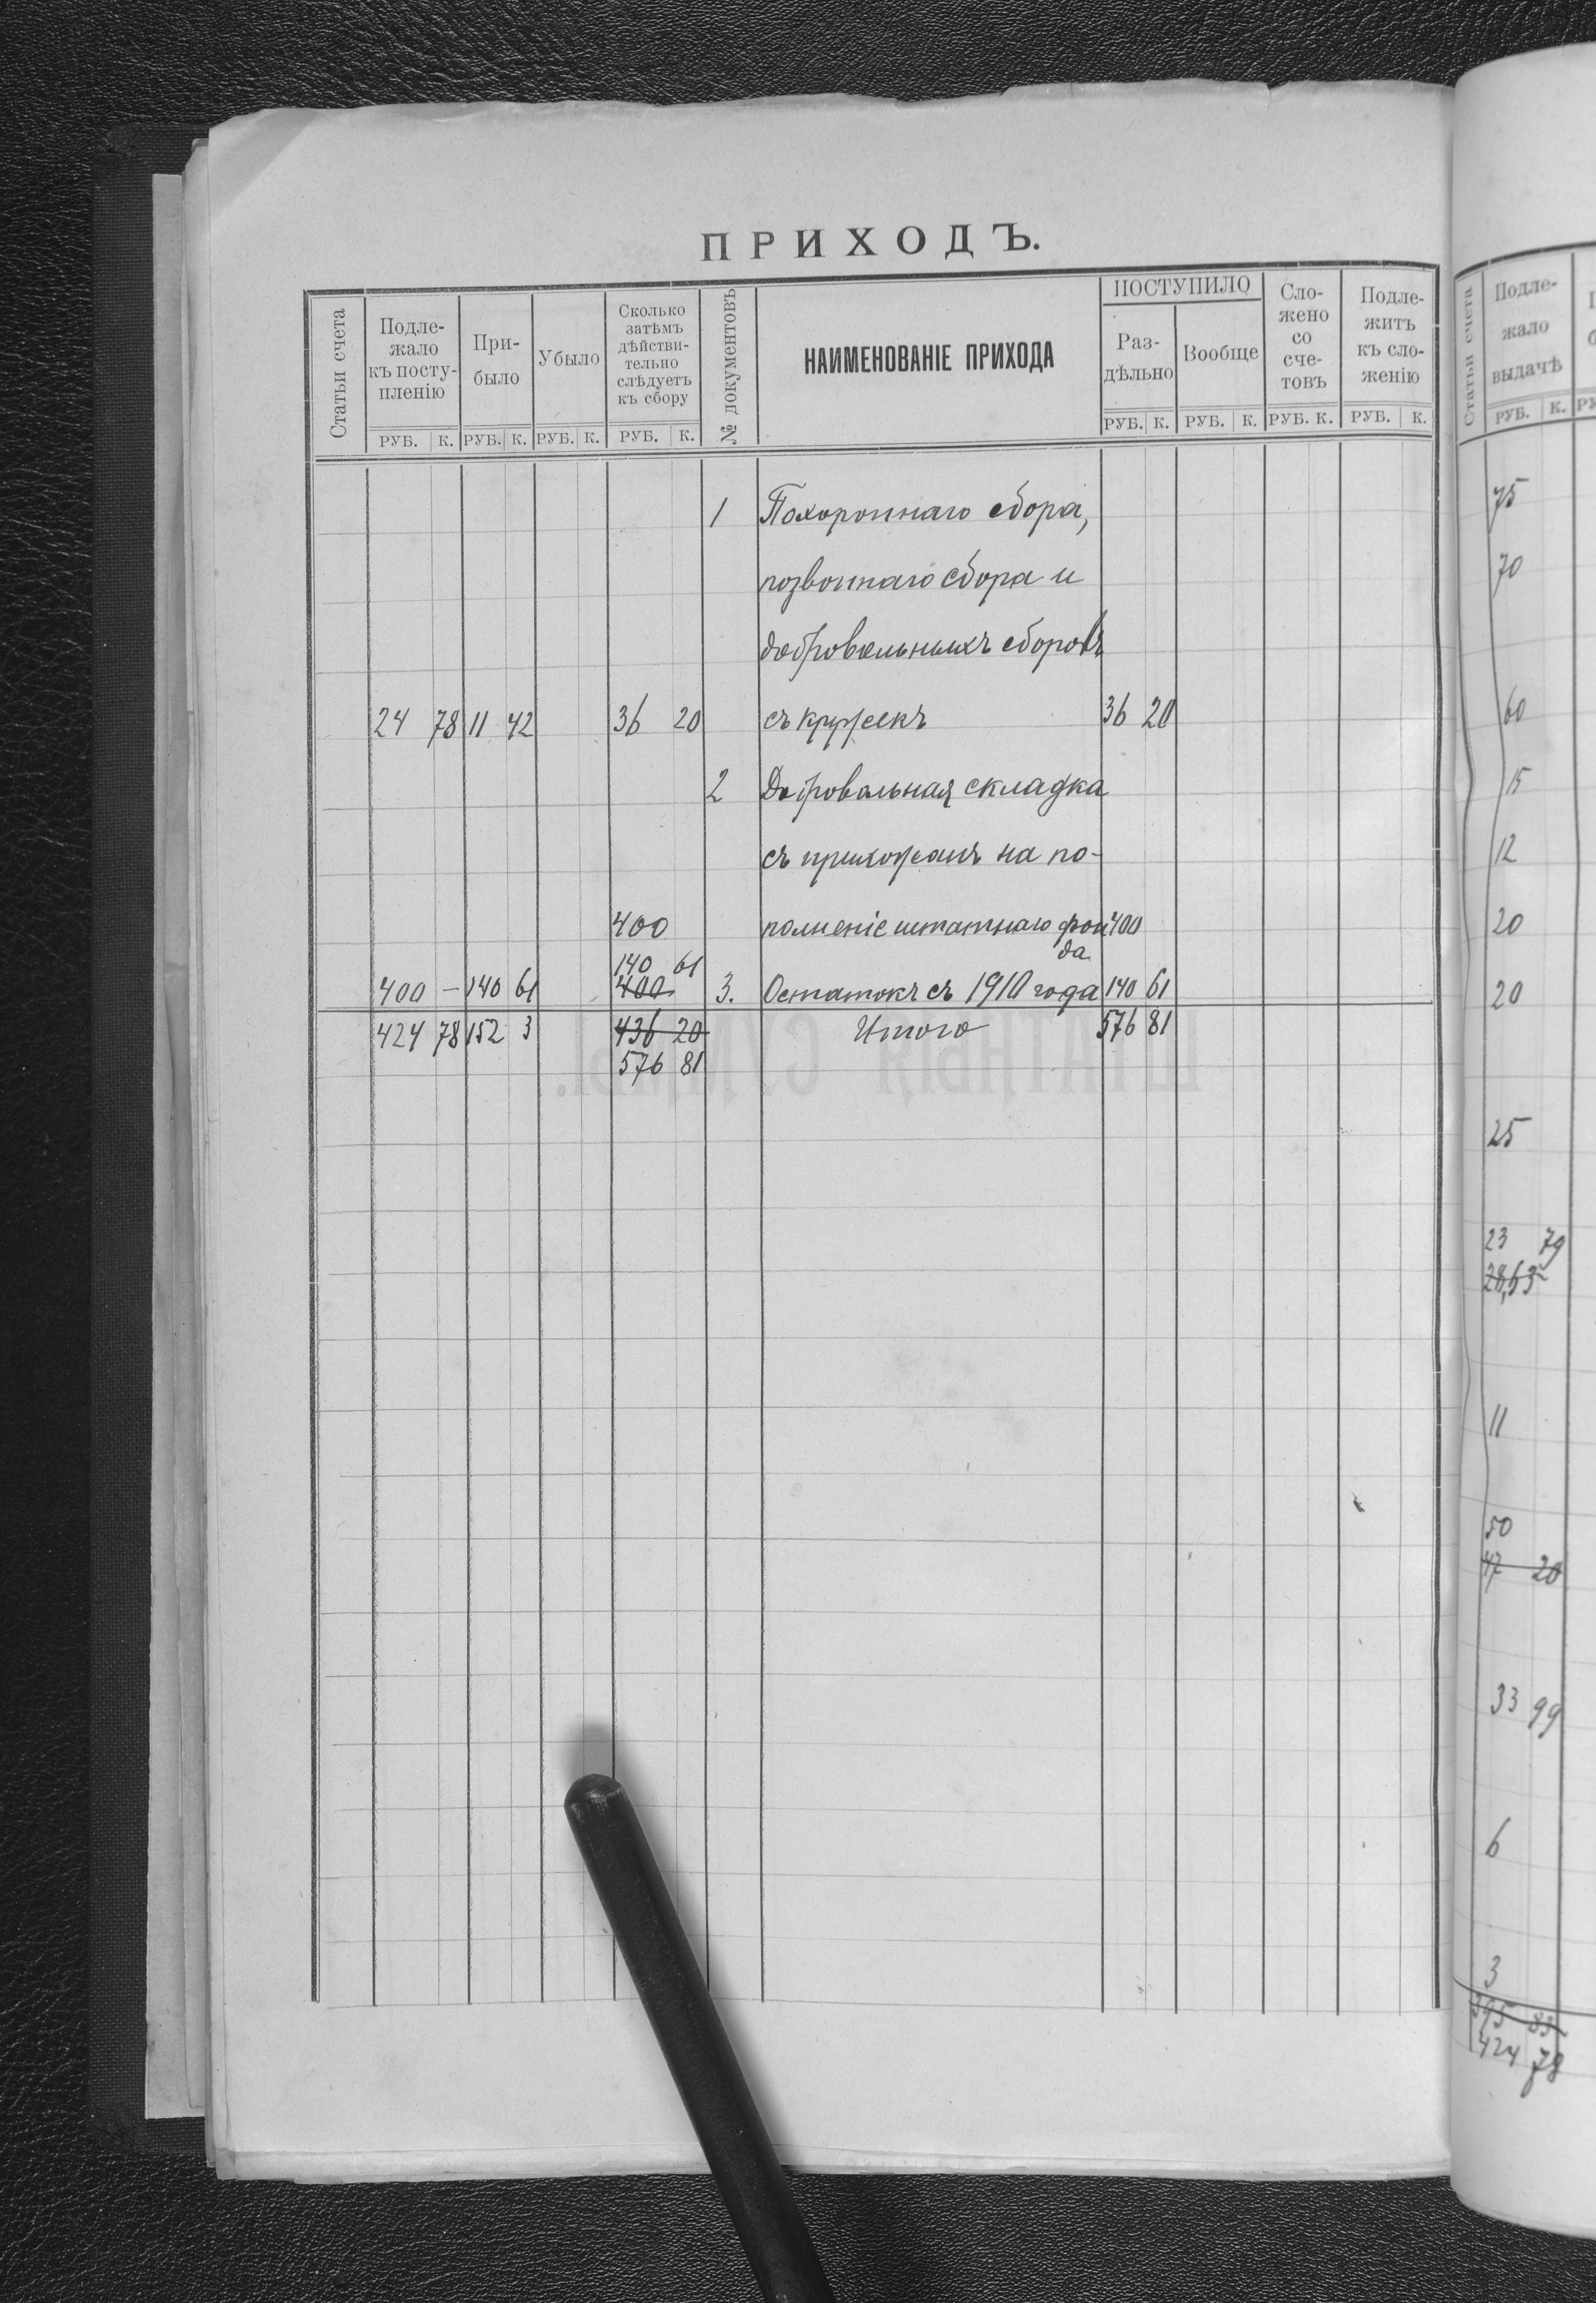 ПРИХОДЪ.
Статьи счета
Подле-
жало
къ посту-
пленію
При-
было
Убыло
Сколько
затѣмъ
дѣйстви-
тельно
слѣдуетъ
къ сбору
№ документовъ
НАИМЕНОВАНІЕ ПРИХОДА
ПОСТУПИЛО
Раз-
дѣльно
Вообще
Сло-
жено
со
сче-
товъ
Подле-
житъ
къ сло-
женію
РУБ. К. РУБ. К. РУБ. К. РУБ. К. РУБ. К. РУБ. К. РУБ. К. РУБ. К.
1 Похороннаго сбора,
позвоннаго сбора и
добровольныхъ сборовъ
24 78 11 42 36 20 съ кружекъ 36 20
2 Добровольная складка
съ прихожанъ на по-
400 полненіе штатнаго фон 400
да
140 61
400 – 140 61 400 3. Остатокъ съ 1910 года 140 61
424 78 152 3 436 20 Итого 576 81
576 81
ШТАТНЫЯ СУММЫ.
Статьи счета
Подле-
жало
выдачѣ
РУБ. К.
75
70
60
15
12
20
20
25
23 79
28,63
11
50
47 20
33 99
6
3
395 83
424 78